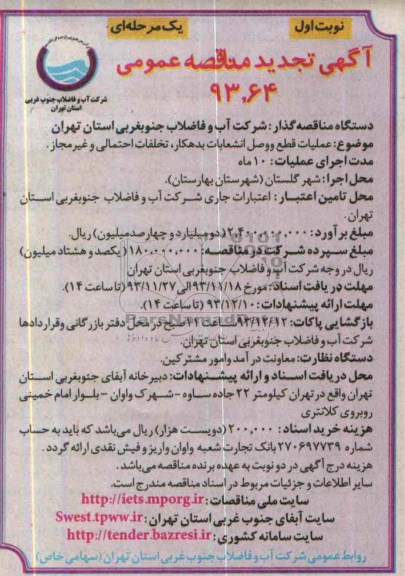 نوبت اول
یک مرحله‌ای
آگهی تجدید مناقصه عمومی
۹۳،۶۴
شرکت آب و فاضلاب جنوب غربی
استان تهران
دستگاه مناقصه گذار: شرکت آب و فاضلاب جنوبغربی استان تهران
موضوع: عملیات قطع و وصل انشعابات بدهکار، تخلفات احتمالی و غیرمجاز.
مدت اجرای عملیات: ۱۰ ماه
محل اجرا: شهر گلستان (شهرستان بهارستان).
محل تامین اعتبار: اعتبارات جاری شرکت آب و فاضلاب جنوبغربی استان
تهران.
مبلغ برآورد: ۲،۴۰۰،۰۰۰،۰۰۰ (دو میلیارد و چهارصد میلیون) ریال.
مبلغ سپرده شرکت در مناقصه: ۱۸۰،۰۰۰،۰۰۰ (یکصد و هشتاد میلیون)
ریال در وجه شرکت آب و فاضلاب جنوبغربی استان تهران
مهلت دریافت اسناد: مورخ ۹۳/۱۱/۱۸ الی ۹۳/۱۱/۲۷ (تا ساعت ۱۴).
مهلت ارائه پیشنهادات: ۹۳/۱۲/۱۰ (تا ساعت ۱۴).
بازگشایی پاکات: ۹۳/۱۲/۱۲ ساعت ۱۱ صبح در محل دفتر بازرگانی و قراردادها
شرکت آب و فاضلاب جنوبغربی استان تهران.
دستگاه نظارت: معاونت درآمد و امور مشترکین.
محل دریافت اسناد و ارائه پیشنهادات: دبیرخانه آبفای جنوبغربی استان
تهران واقع در تهران کیلومتر ۲۲ جاده ساوه - شهرک واوان - بلوار امام خمینی
روبروی کلانتری
هزینه خرید اسناد: ۲۰۰،۰۰۰ (دویست هزار) ریال می‌باشد که باید به حساب
شماره ۲۷۰۶۹۷۷۳۹ بانک تجارت شعبه واوان واریز و فیش نقدی ارائه گردد.
هزینه درج آگهی در دو نوبت به عهده برنده مناقصه می‌باشد.
سایر اطلاعات و جزئیات مربوط در اسناد مناقصه مندرج است.
سایت ملی مناقصات: http://iets.mporg.ir
سایت آبفای جنوب غربی استان تهران: Swest.tpww.ir
سایت سامانه کشوری: http://tender.bazresi.ir
روابط عمومی شرکت آب و فاضلاب جنوب غربی استان تهران (سهامی خاص)